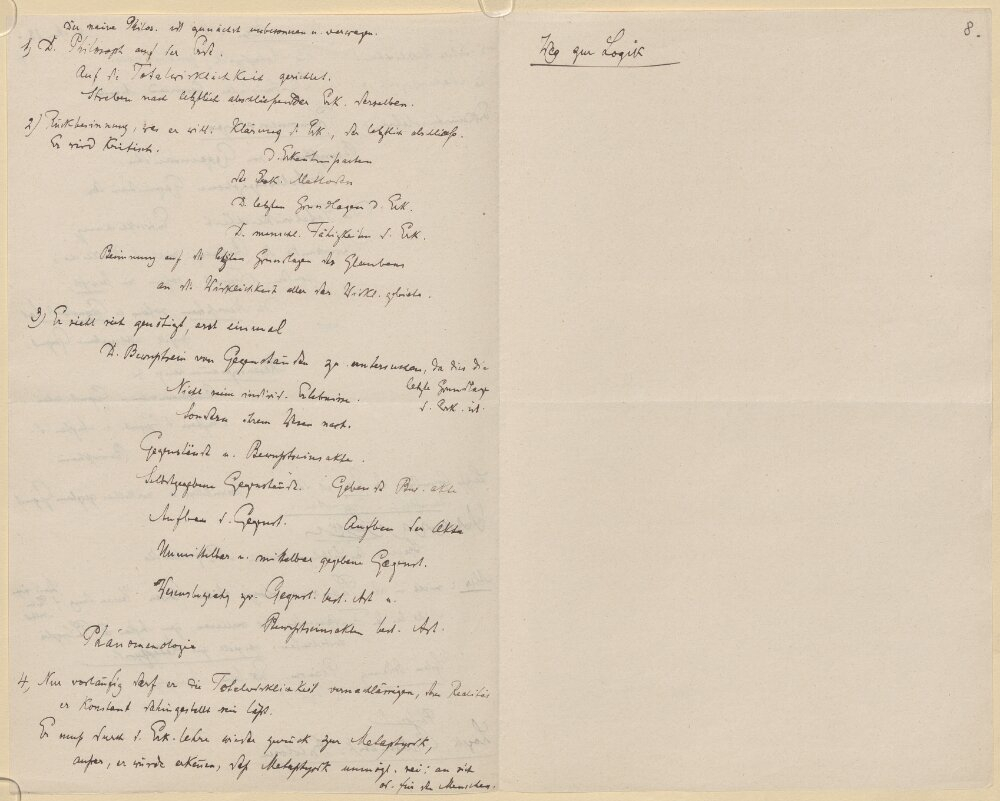 Der naive Philos. ist zunächst unbesonnen u. verwegen.
1) D. Philosoph auf der Erde.
Auf die Totalwirklichkeit gerichtet.
Streben nach letztlich abschließender Erk. derselben.
2) Rückbesinnung, was er will: Klärung d. Erk., der letztlich abschließ.
Er wird kritisch.
D. Erkenntnisarten
die Erk. Methoden
D. letzten Grundlagen d. Erk.
D. menschl. Fähigkeiten d. Erk.
Besinnung auf die letzten Grundlagen des Glaubens
an die Wirklichkeit aller der Wirkl. gebiete.
3) Er sieht sich genötigt, erst einmal
D. Bewußtsein von Gegenständen zu untersuchen, da dies die
letzte Grundlage
d. Erk. ist.
Nicht sein individ. Erlebnisse.
Sondern ihrem Wesen nach.
Gegenstände u. Bewußtseinsakte.
Selbstgegebene Gegenstände. Gebende Bew. akte
Aufbau d. Gegenst. Aufbau der Akte
Unmittelbar u. mittelbar gegebene Gegenst.
Wesensbezieh. zw. Gegenst. best. Art u.
Bewußtseinsakten best. Art.
Phänomenologie
4) Nur vorläufig darf er die Totalwirklichkeit vernachlässigen, deren Realität
er konstant dahingestellt sein läßt.
Er muß durch d. Erk.lehre wieder zurück zur Metaphysik,
außer, er würde erkennen, daß Metaphysik unmögl. sei: an sich
od. für den Menschen.
8.
Weg zur Logik